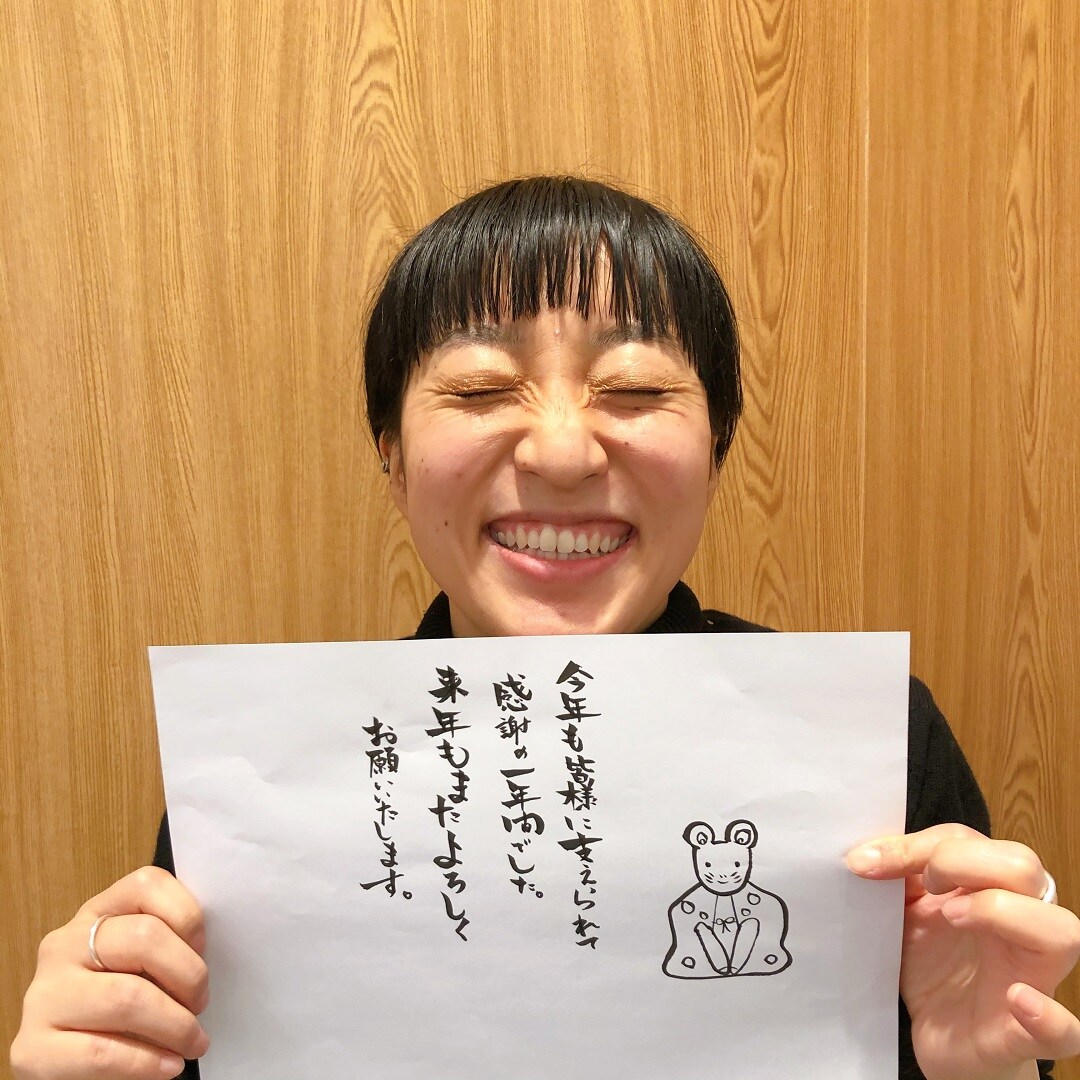 今年も皆様に支えられて
感謝の一年間でした。
来年もまたよろしく
お願いいたします。